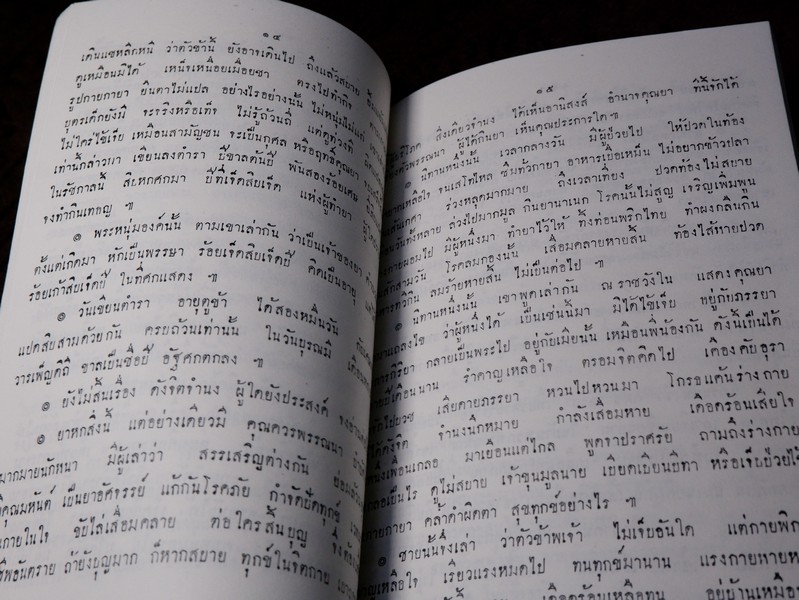 ๑๔
เดินแซหลีกหนี ว่าตัวข้านี้ ยังอาจเดินไป ถึงแล้วสบาย
ดูเหมือนมิได้ เหน็จเหนื่อยเมื่อยซา ตรงไปทำกิจ
รูปกายกายา ยินดาไม่แปล อย่างไรอย่างนั้น ไม่หนุ่มไม่แก่
บุตรเด็กยังมี จะจริงหรือเท็จ ไม่รู้ถ้วนถี่ แต่ดูท่วงที
ไม่ใคร่ใช้เจ็บ เหมือนสามัญชน จะเป็นกุศล หรือฤทธิ์คุณยา
เท่านี้กล่าวมา เขียนลงตำรา ปีขาลต้นปี พันสองร้อยเศษ
ในรัชกาลนี้ สิบหกศกมา ปีที่เจ็ดสิบเจ็ด แห่งผู้ทำยา
จงทำกินเทอญ ฯ
๏ พระหนุ่มองค์นั้น ตามเขาเล่ากัน ว่าเป็นเจ้าของยา
ตั้งแต่เกิดมา หักเป็นพรรษา ร้อยเจ็ดสิบเจ็ดปี คิดเป็นอายุ
ร้อยเก้าสิบเจ็ดปี ในที่ศกแสดง ฯ
๏ วันเขียนตำรา อายุดูข้า ได้สองหมื่นวัน
แปดสิบสามด้วยกัน ครบถ้วนเท่านั้น ในวันบูรณมี
วารเพ็ญดิถี ขาลเป็นชื่อปี อัฐศกตกลง ฯ
๏ ยังไม่สิ้นเรื่อง ดังจิตจำนง ผู้ใดยังประสงค์
๏ ยาหกสิ่งนี้ แต่อย่างเดียวมี คุณควรพรรณนา
มากมายนักหนา มีผู้เล่าว่า สรรเสริญต่างกัน
คุณมหันต์ เป็นยาอัศจรรย์ แก้กันโรคภัย กำจัดปัดทุกข์
กายในใจ ขับไล่เสื่อมคลาย ต่อใครสิ้นบุญ
อันตราย ถ้ายังบุญมาก ก็หากสบาย ทุกข์ในจิตกาย
๑๕
บริโภค สิ่งเดียวจำนง ได้เห็นอานิสงส์ อำนาจคุณยา ที่นึกได้
พรรณนา ผู้ได้กินยา เห็นคุณประการใด ฯ
๏ นิทานหนึ่งนั้น เวลากลางวัน มีผู้ป่วยไป ให้ปวดในท้อง
เหลือใจ จนเสโทไหล ซึมทั่วกายา อาหารเบื่อเหม็น ไม่อยากข้าวปลา
ร่วงหลุดมากมาย ถึงเวลาเที่ยง ปวดท้องไม่สบาย
ทั้งหลาย ล่วงไปมากมูล กินยานาเนก โรคนั้นไม่สูญ เจริญเพิ่มพูน
กายผอมไป มีผู้หนึ่งมา ทำยาไว้ให้ ทิ้งท่อนพริกไทย ทำผงกลืนกิน
สักสามวัน โรคลมกองนั้น เสื่อมคลายหายสิ้น ท้องไส้หายปวด
ลมร้ายหายสิ้น ไม่เป็นต่อไป ฯ
๏ นิทานหนึ่งนั้น เขาพูดเล่ากัน ณ ราชวังใน แสดงคุณยา
แถลงไข ว่าผู้หนึ่งได้ เป็นเช่นนี้มา มิได้ใช้เจ็บ หยู่กับภรรยา
กิริยา กลายเป็นพระไป อยู่กับเมียนั้น เหมือนพี่น้องกัน ดังนี้เป็นได้
เดือนนาน รำคาญเหลือใจ ตรอมจิตคิดไป เคืองคับอุรา
เสียดายภรรยา หวนไปหวนมา โกรธแค้นร่างกาย
ดังจิต จำนงนึกหมาย กำลังเสื่อมหาย เดือดร้อนเสียใจ
เพื่อนเกลอ มาเยือนแต่ไกล พูดจาปราศรัย ถามถึงร่างกาย
เป็นไร ดูไม่สบาย เจ้าขุนมูลนาย เบียดเบียนบีฑา หรือเจ็บป่วยไข้
กายา คล้ำดำผิดตา สุขทุกข์อย่างไร ฯ
๏ ชายนั้นจึงเล่า ว่าตัวข้าพเจ้า ไม่เจ็บอันใด แต่กายพิก
เหลือใจ เรี่ยวแรงหมดไป ทนทุกข์มานาน แรงกายหายห
เดือดร้อนเหลือทน อยู่บ้านเหมือ